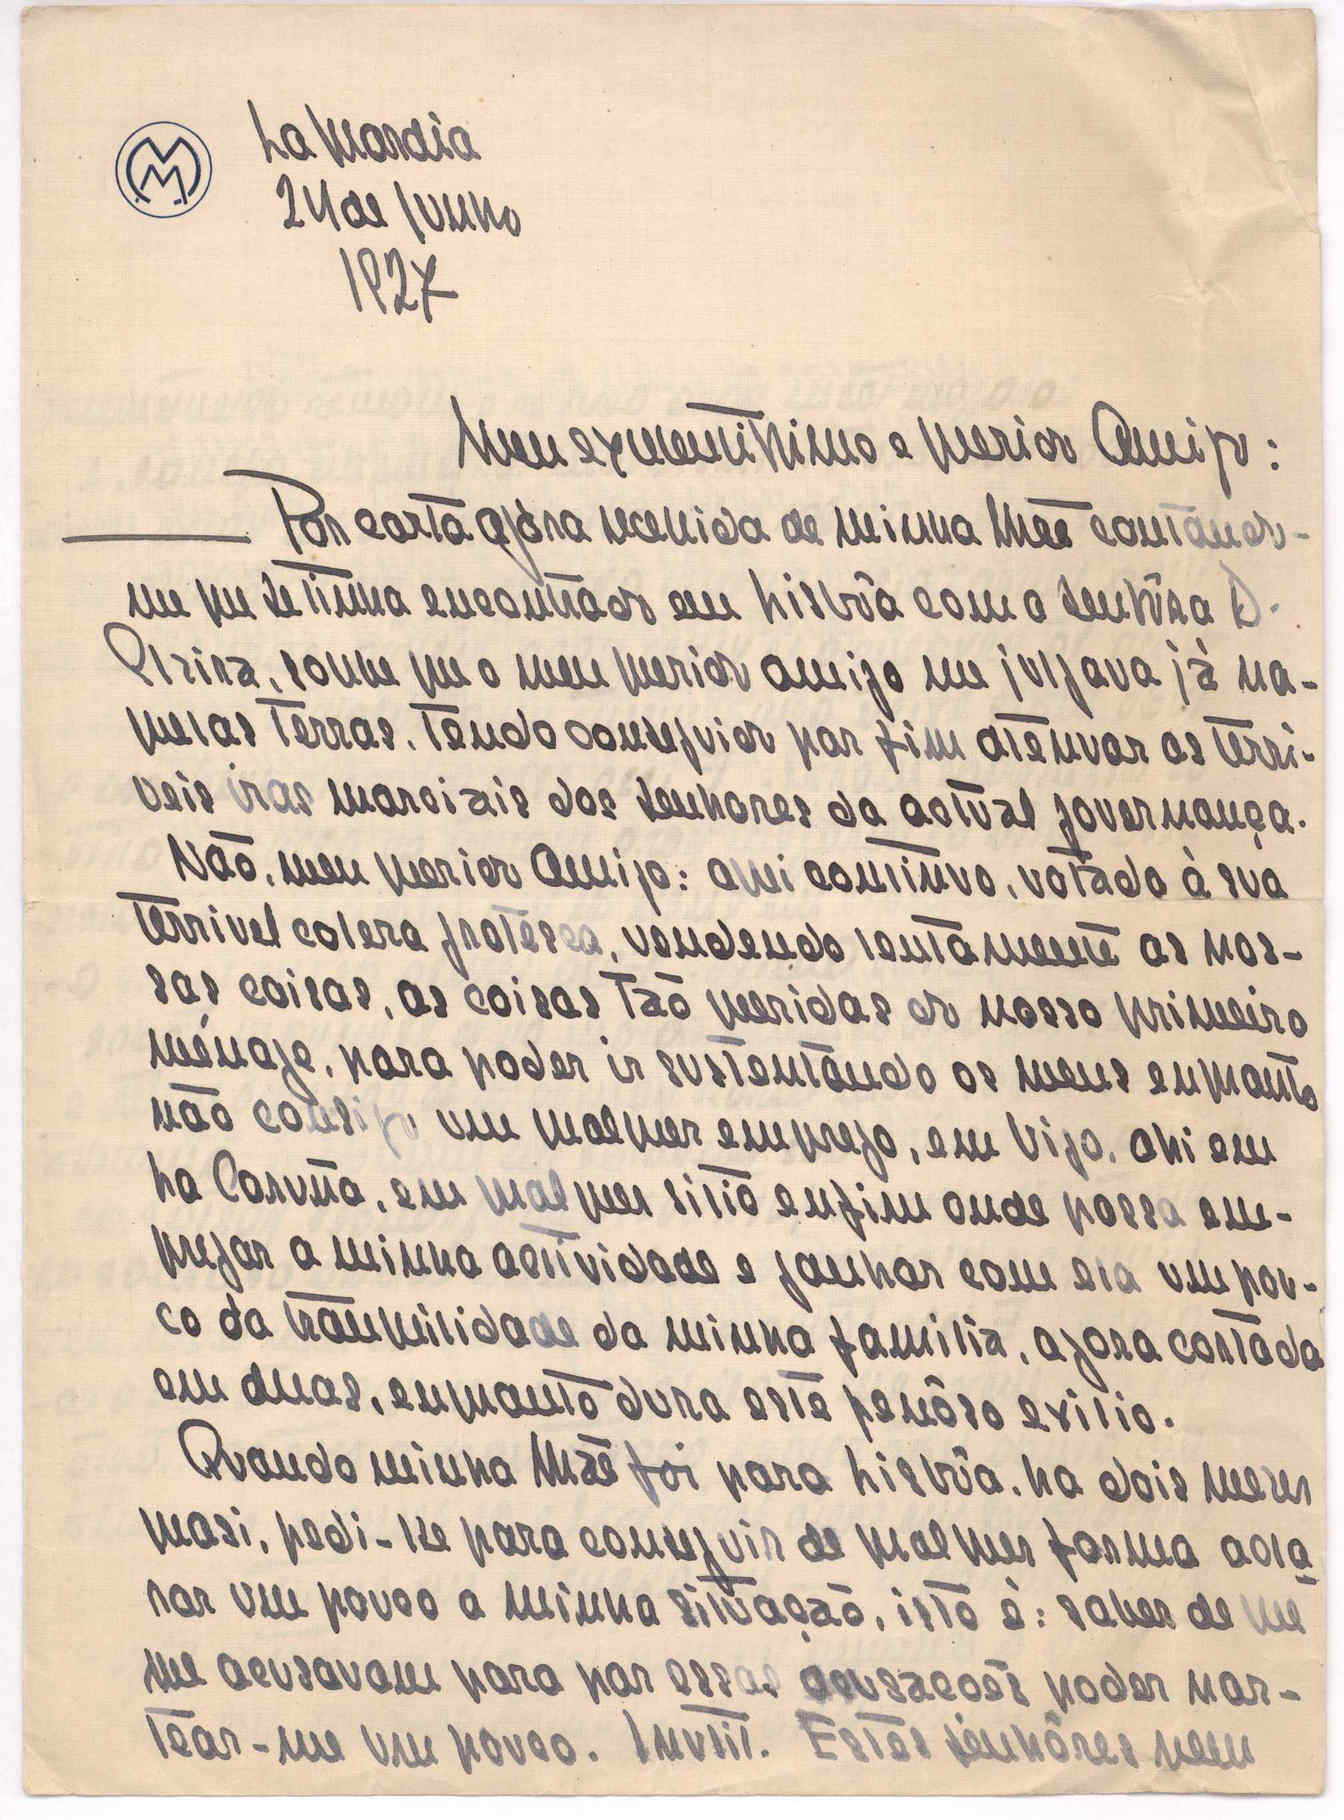 La Guardia
24 de Junho
1927
Meu excelentissimo e querido Amigo:
Por carta agora recebida de minha Mãe contando-
me que se tinha encontrado em Lisbôa com a Senhôra D.
Elzira, soube que o meu querido amigo me julgava já na-
quelas terras, tendo conseguido por fim atenuar as terri-
veis iras marciais dos senhores da actual governança.
Não, meu querido Amigo: aqui continuo, votado à sua
terrivel colera grotesca, vendendo lentamente as nos-
sas coisas, as coisas tão queridas do nosso primeiro
ménage, para poder ir sustentando os meus enquanto
não consigo um qualquer emprego, em Vigo, ahi em
La Coruña, em qualquer sitio enfim onde possa em-
pregar a minha actividade e ganhar com ela um pou-
co da tranquilidade da minha familia, agora cortada
em duas, enquanto dura este penôso exilio.
Quando minha Mãe foi para Lisbôa, ha dois meses
quasi, pedi-lhe para conseguir de qualquer forma acla
rar um pouco a minha situação, isto é: saber de que
me acusavam para por essas acusacoes poder nor-
tear-me um pouco. Inutil. Estes senhôres nem